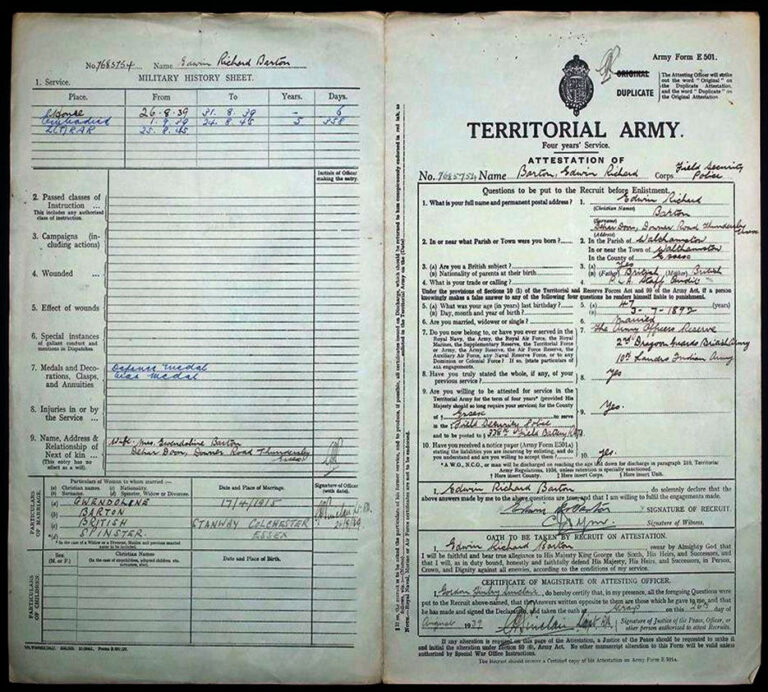 No. 7685754 Name Edwin Richard Barton
MILITARY HISTORY SHEET.
1. Service.
Place. From To Years. Days.
26.8.39 31.8.39 - 6
Embodied 1.9.39 24.8.45 5 358
Z(T)RAR 25.8.45
Initials of Officer making the entry.
2. Passed classes of Instruction ...
This includes any authorised class of instruction.
3. Campaigns (including actions)
4. Wounded ...
5. Effect of wounds
6. Special instances
of gallant conduct and mentions in Dispatches.
7. Medals and Decorations, Clasps, and Annuities
Defence Medal
War Medal
8. Injuries in or by the Service ...
9. Name, Address & Relationship of Next of kin ...
(This entry has no effect as a will)
Wife. Mrs. Gwendoline Barton
Dehar Doon, Downer Road Thundersley
Essex
PARTICULARS OF MARRIAGE.
Particulars of Woman to whom married—
(a) Christian names. (c) Nationality.
(b) Surname. (d) Spinster, Widow or Divorcee.
Date and Place of Marriage.
Signature of Officer (with date).
(a) GWENDOLENE 17/4/1915
(b) BARTON
(c) BRITISH STANWAY COLCHESTER
*(d) SPINSTER ESSEX
PARTICULARS OF CHILDREN.
Sex. (M. or F.)
Christian Names
Date and Place of Birth.
Army Form E 501.
ORIGINAL
DUPLICATE
The Attesting Officer will strike out the word "Original" on the Duplicate Attestation, and the word "Duplicate" on the Original Attestation
TERRITORIAL ARMY.
Four years' Service.
ATTESTATION OF
No. 7685754 Name Barton, Edwin Richard Corps Field Security Police
Questions to be put to the Recruit before Enlistment.
1. What is your full name and permanent postal address?
1. Edwin Richard
(Christian Names)
Barton
(Surname)
Dehar Doon, Downer Road Thundersley Essex
(Address)
2. In or near what Parish or Town were you born?
2. In the Parish of Walthamstow
In or near the Town of Walthamstow
In the County of Essex
3. (a) Are you a British subject?
(b) Nationality of parents at their birth
3. (a) Yes
(b) (Father) British (Mother) British
4. What is your trade or calling?
Under the provisions of Section 10 (1) of the Territorial and Reserve Forces Act and 99 of the Army Act, if a person knowingly makes a false answer to any of the following four questions he renders himself liable to punishment.
5. (a) What was your age (in years) last birthday?
(b) Day, month and year of birth?
5. (a) 47 (years)
(b) 3-7-1892
6. Are you married, widower or single?
6. Married
7. Do you now belong to, or have you ever served in the Royal Navy, the Army, the Royal Air Force, the Royal Marines, the Supplementary Reserve, the Territorial Force or Army, the Army Reserve, the Air Force Reserve, the Auxiliary Air Force, any Naval Reserve Force, or to any Dominion or Colonial Force? If so, state particulars of all engagements.
7. The Army Officers Reserve
2nd Dragoon Guards British Army
10th Lancers Indian Army
8. Have you truly stated the whole, if any, of your previous service?
8. Yes
9. Are you willing to be attested for service in the Territorial Army for the term of four years* (provided His Majesty should so long require your services) for the County of
† Essex to serve
in the ‡ Field Security Police
9. Yes.
10. Have you received a notice paper (Army Form E501a) stating the liabilities you are incurring by enlisting, and do you understand and are you willing to accept them?
10. Yes.
† Here insert County. ‡ Here insert Corps. § Insert Unit.
I, Edwin Richard Barton do solemnly declare that the above answers made by me to the above questions are true, and that I am willing to fulfil the engagements made.
SIGNATURE OF RECRUIT.
Signature of Witness.
OATH TO BE TAKEN BY RECRUIT ON ATTESTATION.
I, Edwin Richard Barton swear by Almighty God that I will be faithful and bear true allegiance to His Majesty King George the Sixth, His Heirs, and Successors, and that I will, as in duty bound, honestly and faithfully defend His Majesty, His Heirs, and Successors, in Person, Crown, and Dignity against all enemies, according to the conditions of my service.
CERTIFICATE OF MAGISTRATE OR ATTESTING OFFICER.
Sinclair, do hereby certify that, in my presence, all the foregoing Questions were put to the Recruit above-named, that the Answers written opposite to them are those which he gave to me, and that he has made and signed the Declaration and taken the oath at on this 26th day of August 1939
Signature of Justice of the Peace, Officer, or other person authorised to attest Recruits.
If any alteration is required on this page of the Attestation, a Justice of the Peace should be requested to make it and initial the alteration under Section 80 (6), Army Act. No other manuscript alteration to this Form will be valid unless authorised by Special War Office Instructions.
The Recruit should receive a Certified copy of his Attestation on Army Form E 501A.